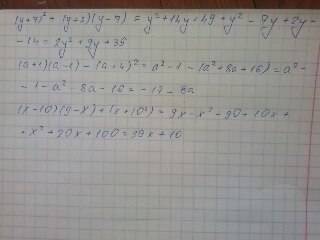 (y+7)² + (y+2)(y-7) = y²+14y+49+y²-7y+2y-
-14 = 2y²+9y+35
(a+1)(a-1)-(a+4)² = a²-1-(a²+8a+16) = a²-
-1-a²-8a-16 = -17-8a
(x-10)(9-x)+(x+10)² = 9x-x²-90+10x+
+x²+20x+100 = 39x+10